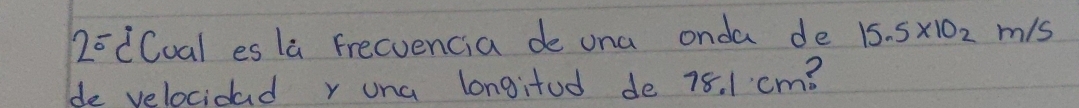 2º ¿Cual es la frecuencia de una onda de 15.5x10₂ m/s
de velocidad y una longitud de 78.1 cm?